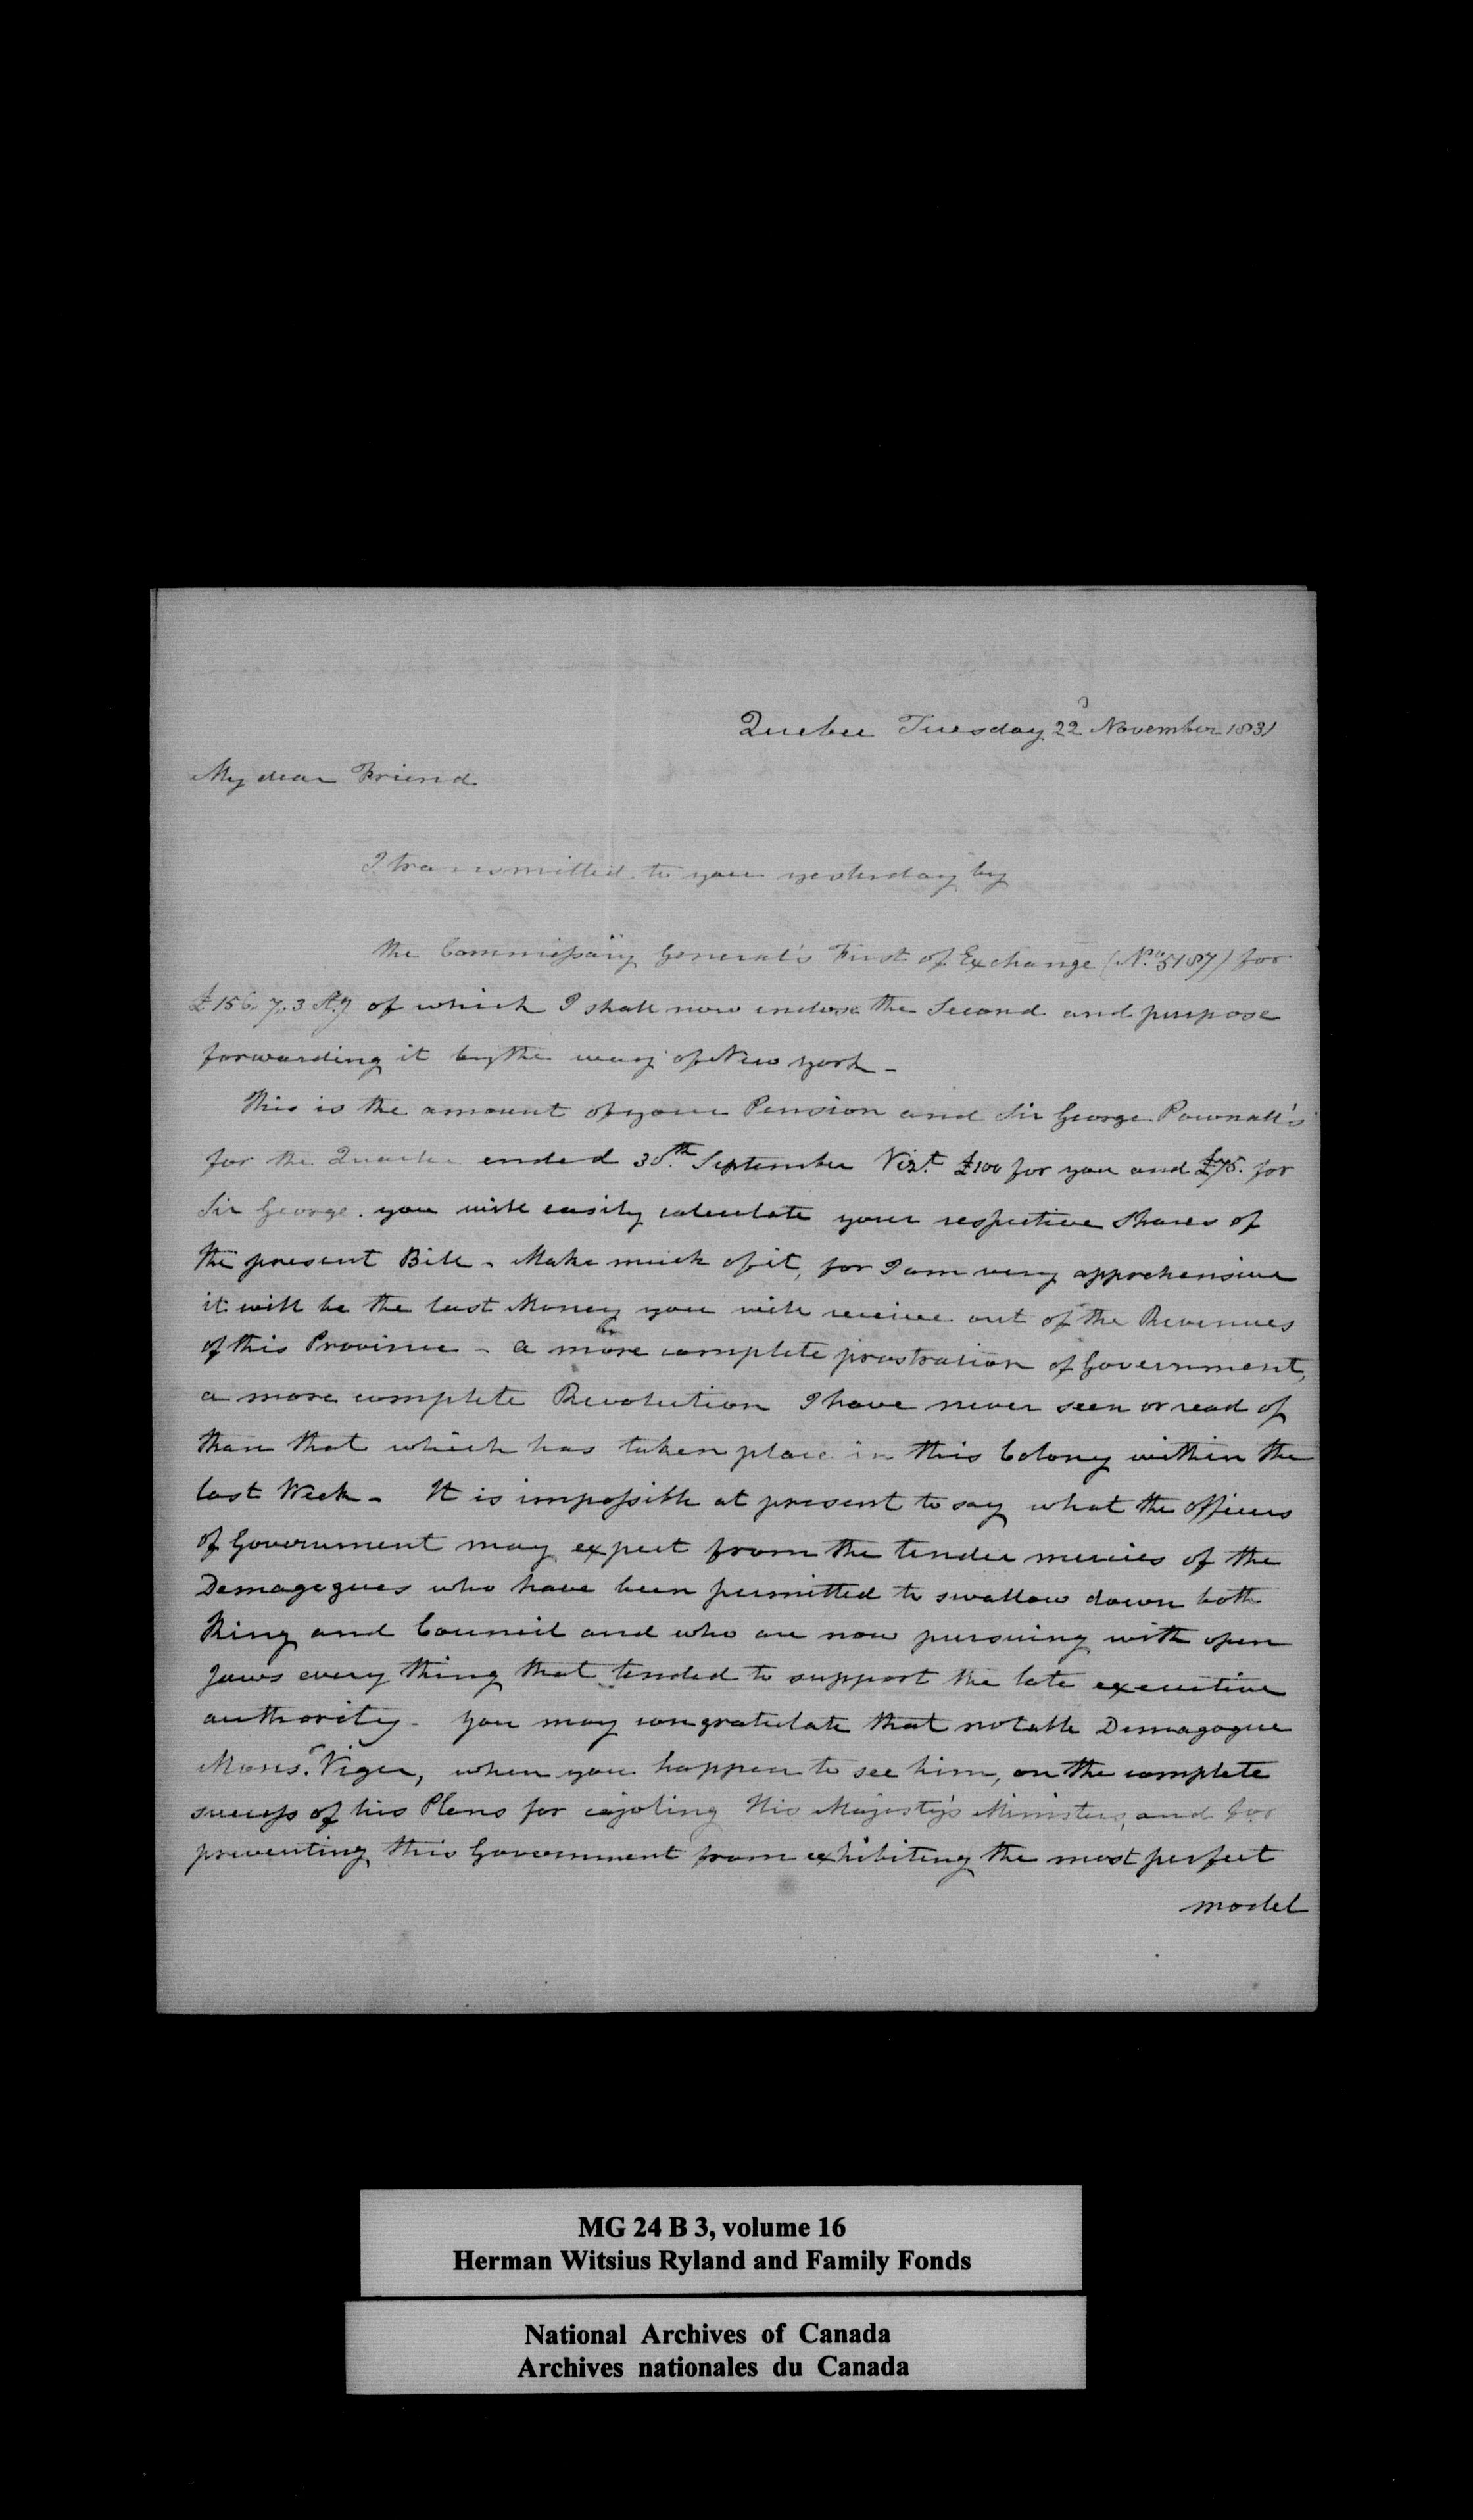 Quebec Tuesday 22d November 1831
My dear Friend
I transmitted to you yesterday by
the Commissary General's First of Exchange (No. 5187) for
£156. 7. 3 Stg of which I shall now enclose the Second and purpose
forwarding it by the way of New York -
This is the amount of your Pension and Sir George Pownall's
for the Quarter ended 30th September Vizt. £100 for you and £75. for
Sir George. you will easily calculate your respective Shares of
the present Bill - Make much of it, for I am very apprehensive
it will be the last Money you will receive out of the Revenues
of this Province - a more complete prostration of Government,
a more complete Revolution I have never seen or read of
than that which has taken place in this Colony within the
last Week - It is impossible at present to say what the officers
of Government may expect from the tender mercies of the
Demagogues who have been permitted to swallow down both
King and Council and who are now pursuing with open
Jaws every thing that tended to support the late executive
authority - you may congratulate that notable Demagogue
Monsr. Viger, when you happen to see him, on the complete
success of his Plans for cajoling His Majesty's Ministers, and for
preventing this Government from exhibiting the most perfect
model
MG 24 B 3, volume 16
Herman Witsius Ryland and Family Fonds
National Archives of Canada
Archives nationales du Canada